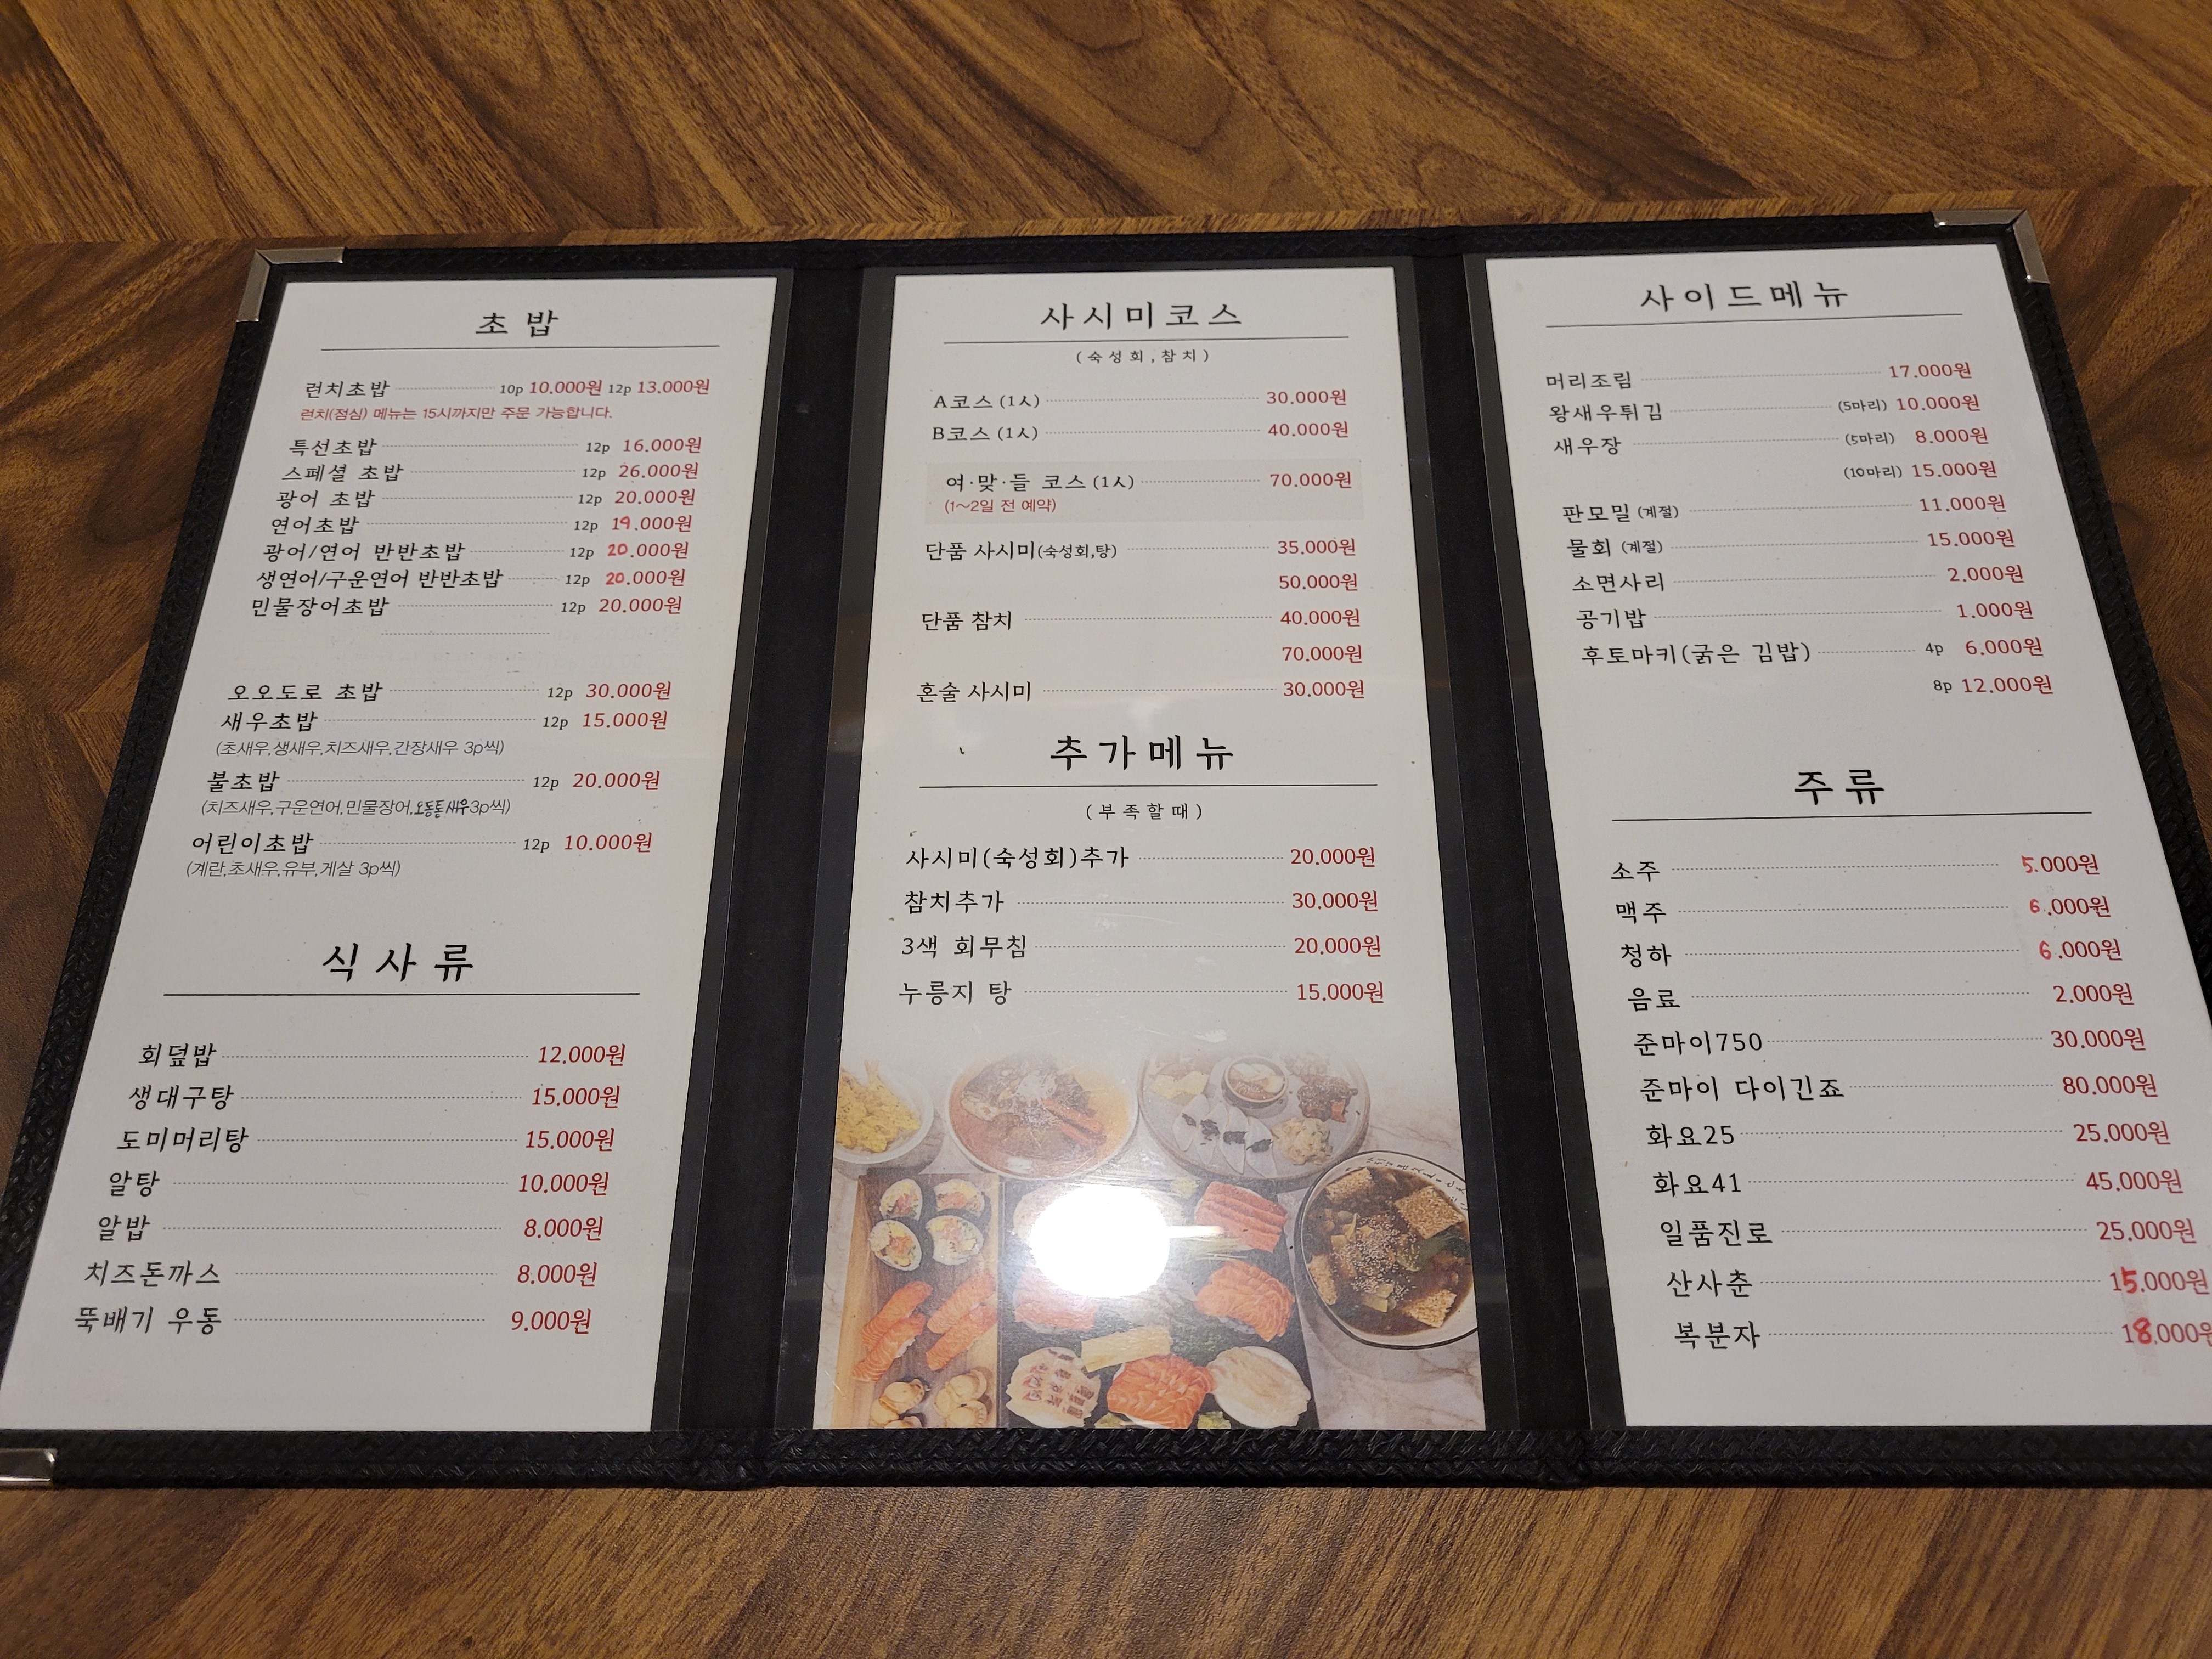 초밥
런치초밥 10p 10.000원 12p 13.000원
런치(점심) 메뉴는 15시까지만 주문 가능합니다.
특선초밥 12p 16.000원
스페셜 초밥 12p 26.000원
광어 초밥 12p 20.000원
연어초밥 12p 19.000원
광어/연어 반반초밥 12p 20.000원
생연어/구운연어 반반초밥 12p 20.000원
민물장어초밥 12p 20.000원
오오도로 초밥 12p 30.000원
새우초밥 12p 15.000원
(초새우,생새우,치즈새우,간장새우 3p씩)
불초밥 12p 20.000원
(치즈새우,구운연어,민물장어,오동통새우3p씩)
어린이초밥 12p 10.000원
(계란,초새우,유부,게살 3p씩)
식사류
회덮밥 12.000원
생대구탕 15.000원
도미머리탕 15.000원
알탕 10.000원
알밥 8.000원
치즈돈까스 8.000원
뚝배기 우동 9.000원
사시미코스
(숙성회,참치)
A코스 (1人) 30.000원
B코스 (1人) 40.000원
여·맞·들 코스 (1人) 70.000원
(1~2일 전 예약)
단품 사시미(숙성회,탕) 35.000원
50.000원
단품 참치 40.000원
70.000원
혼술 사시미 30.000원
추가메뉴
(부족할때)
사시미(숙성회)추가 20.000원
참치추가 30.000원
3색 회무침 20.000원
누릉지 탕 15.000원
사이드메뉴
머리조림 17.000원
왕새우튀김 (5마리) 10.000원
새우장 (5마리) 8.000원
(10마리) 15.000원
판모밀 (계절) 11.000원
물회 (계절) 15.000원
소면사리 2.000원
공기밥 1.000원
후토마키(굵은 김밥) 4p 6.000원
8p 12.000원
주류
소주 5.000원
맥주 6.000원
청하 6.000원
음료 2.000원
준마이750 30.000원
준마이 다이긴죠 80.000원
화요25 25.000원
화요41 45.000원
일품진로 25.000원
산사춘 15.000원
복분자 18.000원